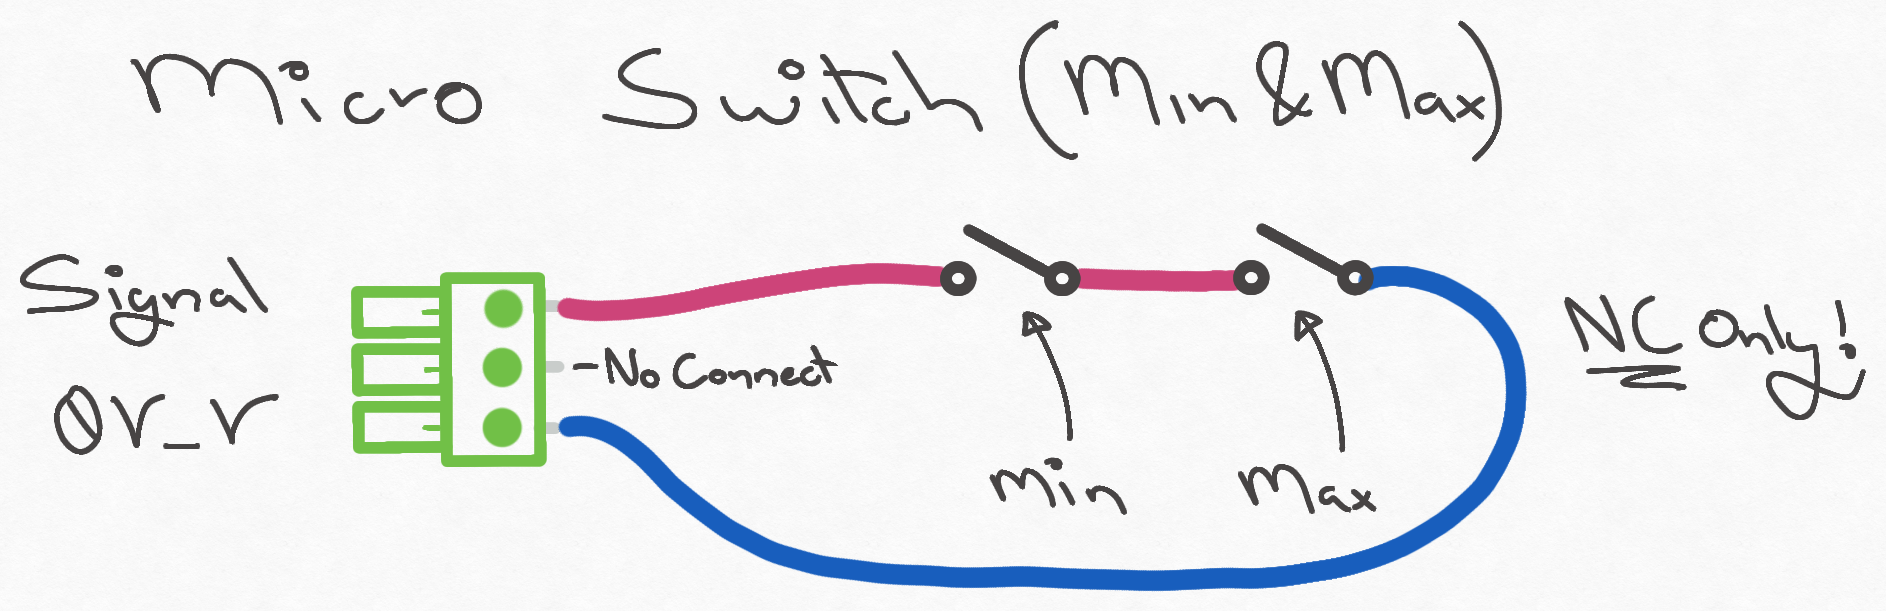 Micro Switch (Min & Max)
Signal
0V_V
- No Connect
Min
Max
NC Only!